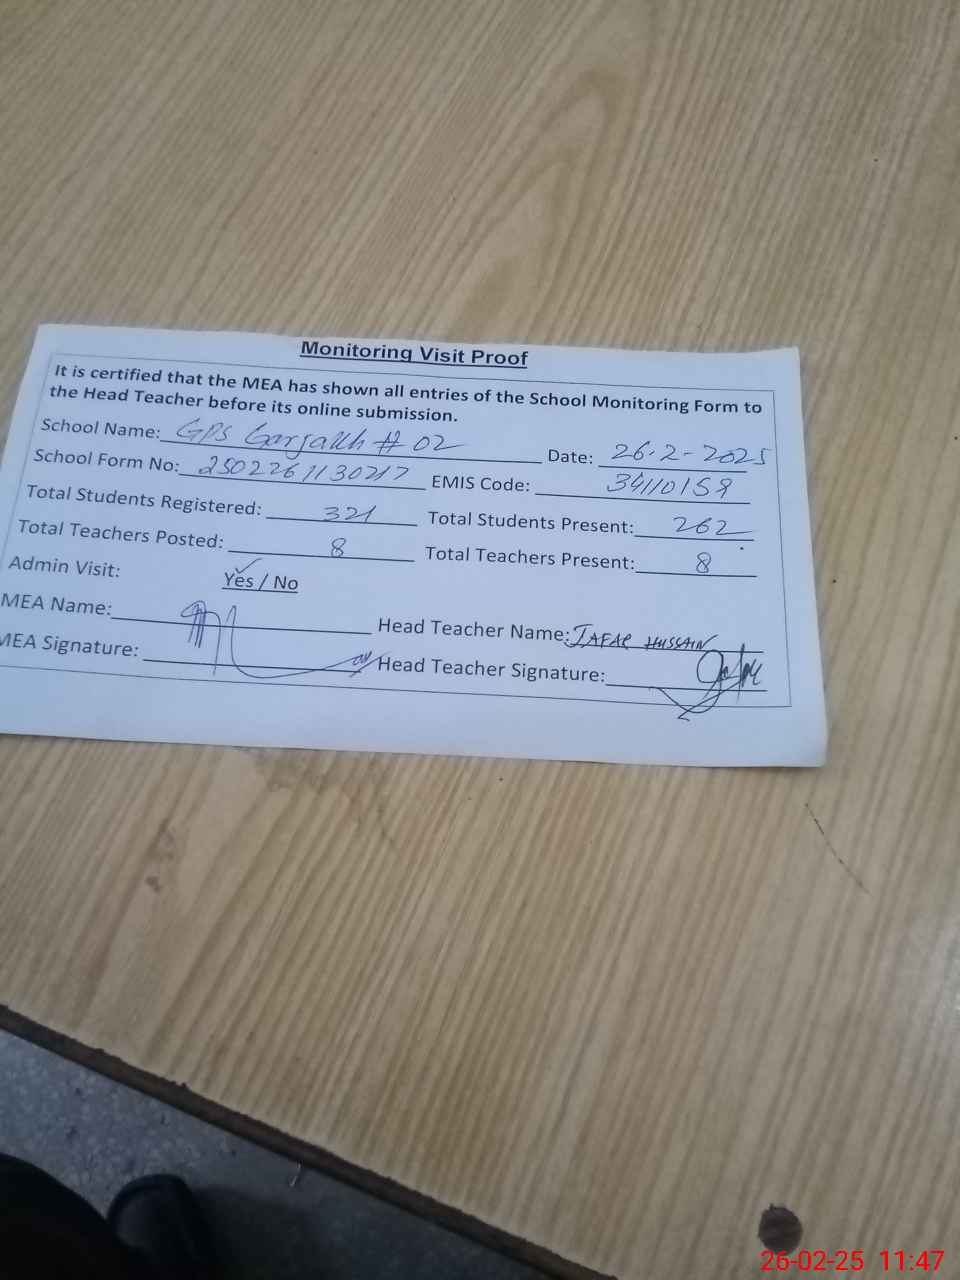 Monitoring Visit Proof
It is certified that the MEA has shown all entries of the School Monitoring Form to
the Head Teacher before its online submission.
School Name: GPS Garjakh # 02 Date: 26-2-2025
School Form No: 2502261130217 EMIS Code: 34110159
Total Students Registered: 321 Total Students Present: 262
Total Teachers Posted: 8 Total Teachers Present: 8
Admin Visit: Yes / No
MEA Name: Head Teacher Name: JAFAR HUSSAIN
MEA Signature: Head Teacher Signature:
26-02-25 11:47